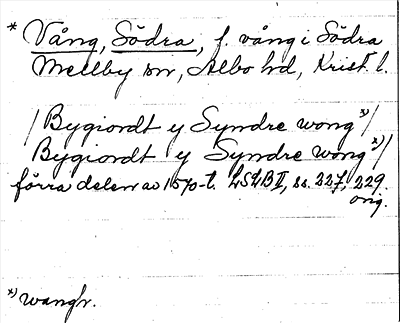 * Vång, Södra, f. vång i Södra
Mellby sn, Albo hd, Krist. l.
/ Bygiordt y Syndre wong x) /
Bygiordt y Syndre wong x) /
förra delen av 1570-t. LSLB II, ss. 227, 229.
orig.
x) wangh.